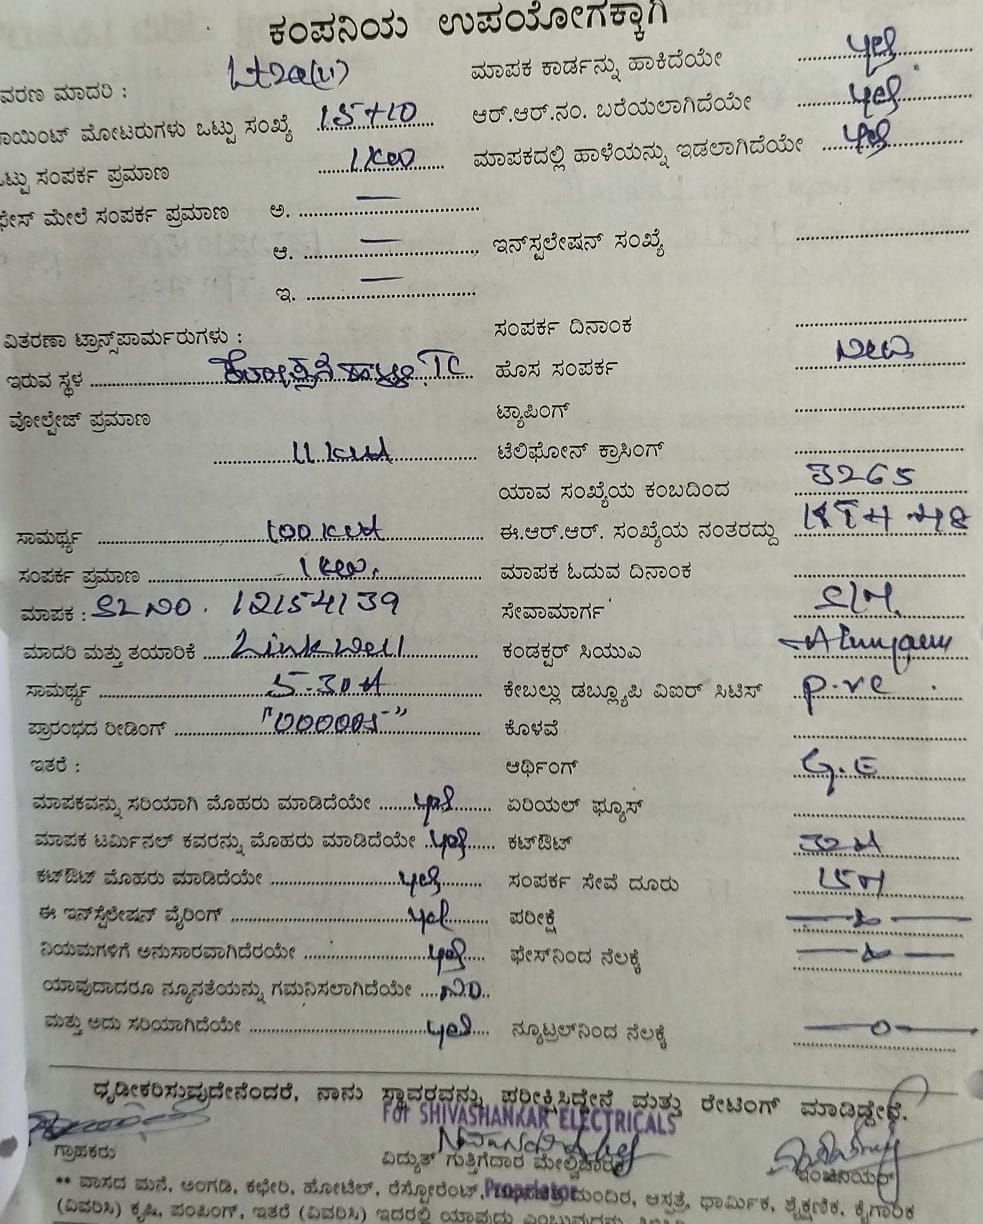 ಕಂಪನಿಯ ಉಪಯೋಗಕ್ಕಾಗಿ
ವರಣ ಮಾದರಿ : Lt2a(ii) ಮಾಪಕ ಕಾರ್ಡನ್ನು ಹಾಕಿದೆಯೇ yes
ಾಯಿಂಟ್ ಮೋಟರುಗಳು ಒಟ್ಟು ಸಂಖ್ಯೆ 15+10 ಆರ್.ಆರ್.ನಂ. ಬರೆಯಲಾಗಿದೆಯೇ yes
ಒಟ್ಟು ಸಂಪರ್ಕ ಪ್ರಮಾಣ 1KW ಮಾಪಕದಲ್ಲಿ ಹಾಳೆಯನ್ನು ಇಡಲಾಗಿದೆಯೇ yes
ಫೇಸ್ ಮೇಲೆ ಸಂಪರ್ಕ ಪ್ರಮಾಣ ಅ. —
ಆ. — ಇನ್‌ಸ್ಟಲೇಷನ್ ಸಂಖ್ಯೆ
ಇ. —
ವಿತರಣಾ ಟ್ರಾನ್ಸ್‌ಪಾರ್ಮರುಗಳು : ಸಂಪರ್ಕ ದಿನಾಂಕ
ಇರುವ ಸ್ಥಳ TC ಹೊಸ ಸಂಪರ್ಕ
ವೋಲ್ಟೇಜ್ ಪ್ರಮಾಣ ಟ್ಯಾಪಿಂಗ್
11 ಟೆಲಿಫೋನ್ ಕ್ರಾಸಿಂಗ್
ಯಾವ ಸಂಖ್ಯೆಯ ಕಂಬದಿಂದ 3265
ಸಾಮರ್ಥ್ಯ 100 KVA ಈ.ಆರ್.ಆರ್. ಸಂಖ್ಯೆಯ ನಂತರದ್ದು
ಸಂಪರ್ಕ ಪ್ರಮಾಣ 1KW. ಮಾಪಕ ಓದುವ ದಿನಾಂಕ
ಮಾಪಕ : SL NO. 12154139 ಸೇವಾಮಾರ್ಗ S/M.
ಮಾದರಿ ಮತ್ತು ತಯಾರಿಕೆ Linkwell ಕಂಡಕ್ಟರ್ ಸಿಯುಎ
ಸಾಮರ್ಥ್ಯ 5-30A ಕೇಬಲ್ಲು ಡಬ್ಲ್ಯೂಪಿ ವಿಐರ್ ಸಿಟಿಸ್ p.vc
ಪ್ರಾರಂಭದ ರೀಡಿಂಗ್ ಕೊಳವೆ
ಇತರೆ : ಆರ್ಥಿಂಗ್ G.E
ಮಾಪಕವನ್ನು ಸರಿಯಾಗಿ ಮೊಹರು ಮಾಡಿದೆಯೇ yes ಏರಿಯಲ್ ಫ್ಯೂಸ್
ಮಾಪಕ ಟರ್ಮಿನಲ್ ಕವರನ್ನು ಮೊಹರು ಮಾಡಿದೆಯೇ yes ಕಟ್‌ಔಟ್ 32A
ಕಟ್‌ಔಟ್ ಮೊಹರು ಮಾಡಿದೆಯೇ yes ಸಂಪರ್ಕ ಸೇವೆ ದೂರು 15M
ಈ ಇನ್‌ಸ್ಟೆಲೇಷನ್ ವೈರಿಂಗ್ yes ಪರೀಕ್ಷೆ
ನಿಯಮಗಳಿಗೆ ಅನುಸಾರವಾಗಿದೆರಯೇ yes ಫೇಸ್‌ನಿಂದ ನೆಲಕ್ಕೆ
ಯಾವುದಾದರೂ ನ್ಯೂನತೆಯನ್ನು ಗಮನಿಸಲಾಗಿದೆಯೇ NO
ಮತ್ತು ಅದು ಸರಿಯಾಗಿದೆಯೇ yes ನ್ಯೂಟ್ರಲ್‌ನಿಂದ ನೆಲಕ್ಕೆ —0—
ಧೃಡೀಕರಿಸುವುದೇನೆಂದರೆ, ನಾನು ಸ್ಥಾವರವನ್ನು ಪರೀಕ್ಷಿಸಿದ್ದೇನೆ ಮತ್ತು ರೇಟಿಂಗ್ ಮಾಡಿದ್ದೇನೆ.
For SHIVASHANKAR ELECTRICALS
ಗ್ರಾಹಕರು ವಿದ್ಯುತ್ ಗುತ್ತಿಗೆದಾರ ಮೇಲ್ವಿಚಾರಕ ಇಂಜಿನಿಯರ್
Proprietor
** ವಾಸದ ಮನೆ, ಅಂಗಡಿ, ಕಛೇರಿ, ಹೋಟೆಲ್, ರೆಸ್ಟೋರೆಂಟ್, ಮಂದಿರ, ಆಸ್ಪತ್ರೆ, ಧಾರ್ಮಿಕ, ಶೈಕ್ಷಣಿಕ, ಕೈಗಾರಿಕ
(ವಿವರಿಸಿ) ಕೃಷಿ, ಪಂಪಿಂಗ್, ಇತರೆ (ವಿವರಿಸಿ) ಇದರಲ್ಲಿ ಯಾವುದು